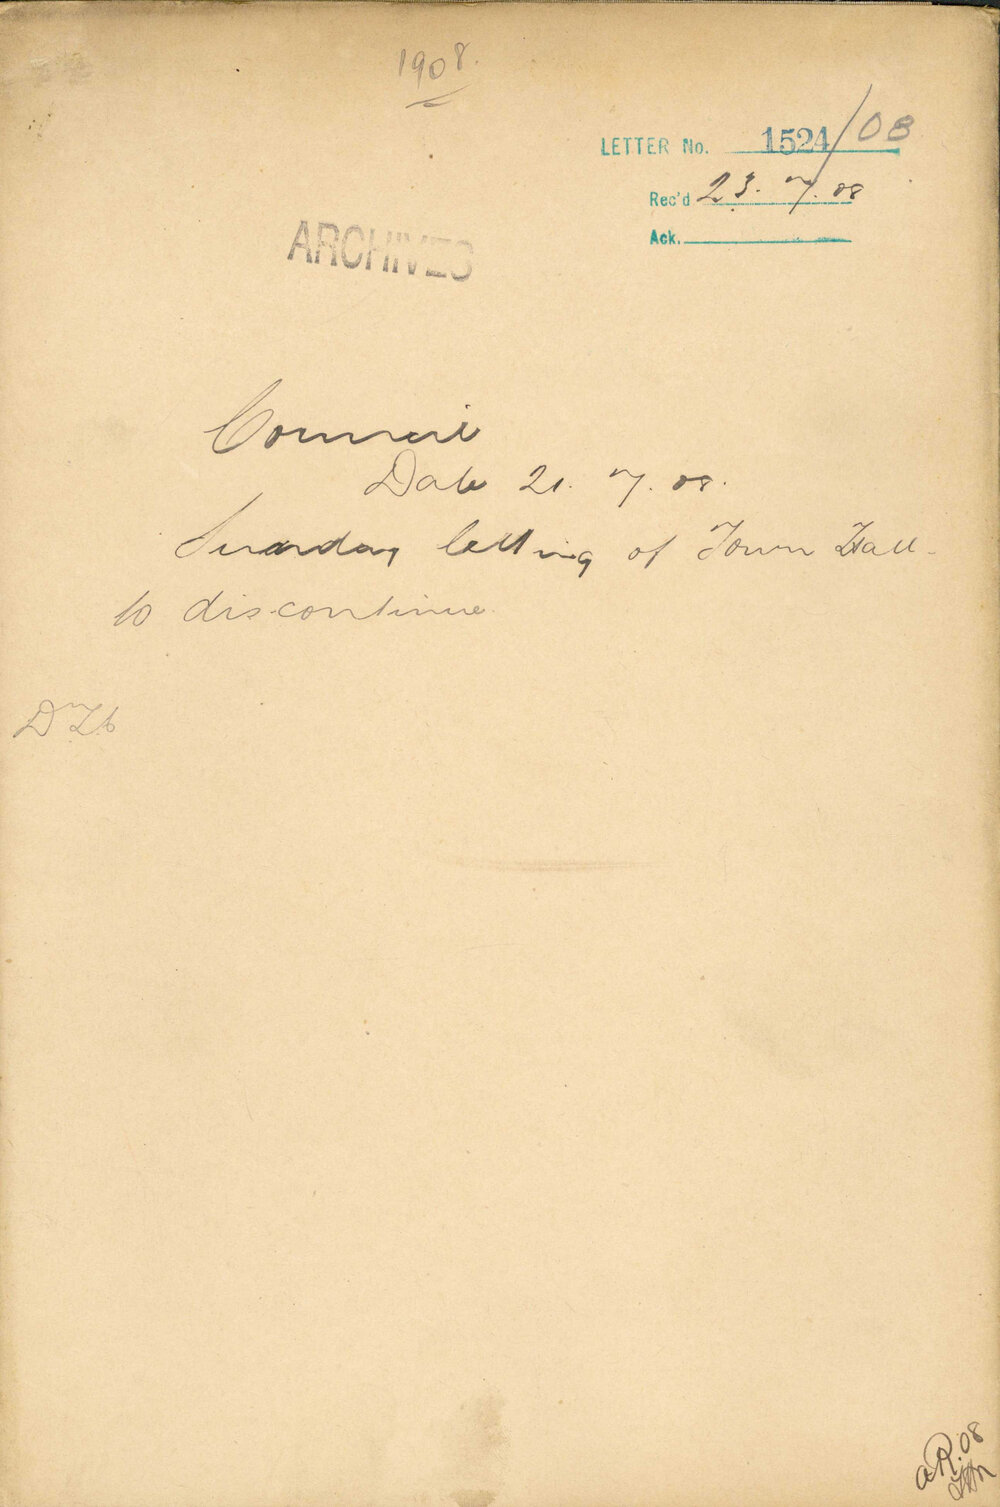 1908.
LETTER No. 1524/08
Rec'd 23. 7. 08
Ack.
ARCHIVES
Council
Date 21. 7. 08.
Sunday letting of Town Hall
to discontinue.
AR. 08